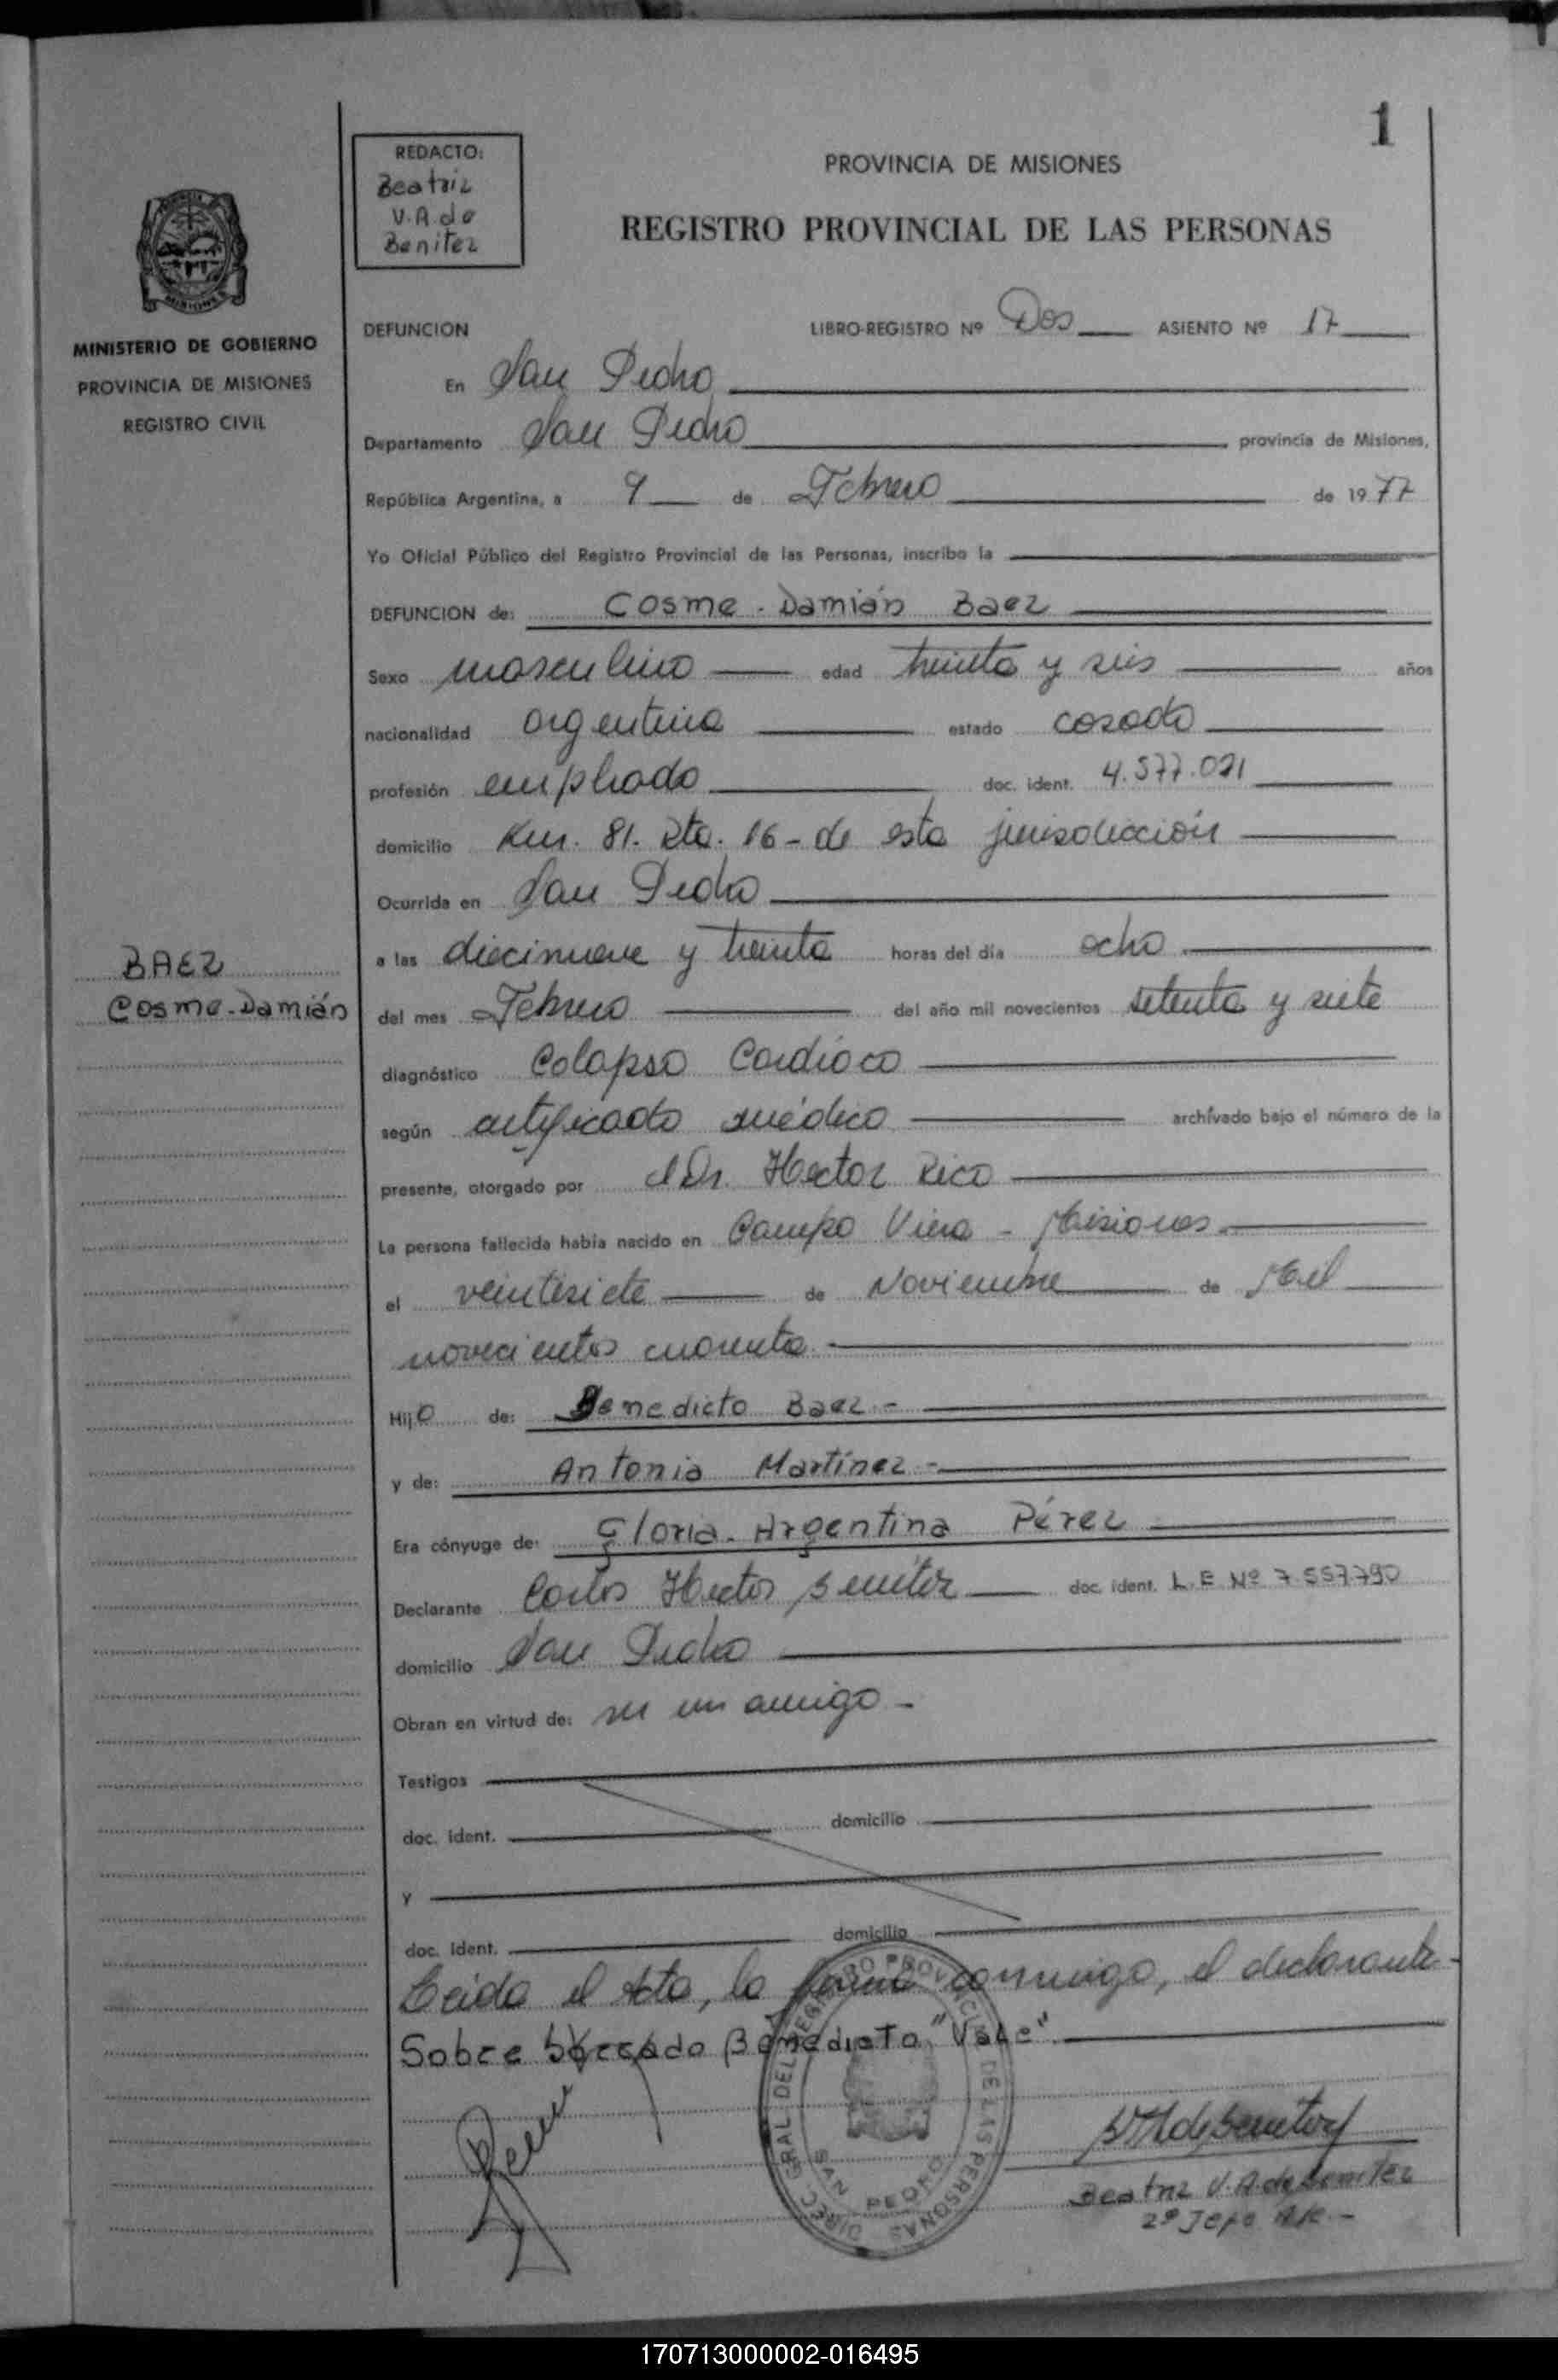 1
REDACTO:
Beatriz
V.A. de
Benitez
PROVINCIA DE MISIONES
REGISTRO PROVINCIAL DE LAS PERSONAS
MISIONES
MINISTERIO DE GOBIERNO
PROVINCIA DE MISIONES
REGISTRO CIVIL
DEFUNCION LIBRO-REGISTRO Nº Dos ASIENTO Nº 17
En San Pedro
Departamento San Pedro provincia de Misiones,
República Argentina, a 9 de Febrero de 1977
Yo Oficial Público del Registro Provincial de las Personas, inscribo la
DEFUNCION de: Cosme - Damián Baez
Sexo masculino edad treinta y seis años
nacionalidad argentina estado casado
profesión empleado doc. ident. 4.577.021
domicilio Km. 81. Rta. 16 - de esta jurisdicción
Ocurrida en San Pedro
a las diecinueve y treinta horas del día ocho
BAEZ
Cosme-Damián
del mes Febrero del año mil novecientos setenta y siete
diagnóstico Colapso Cardíaco
según certificado médico archivado bajo el número de la
presente, otorgado por el Dr. Hector Rico
La persona fallecida había nacido en Campo Viera - Misiones
el veintisiete de Noviembre de Mil
novecientos cuarenta
Hijo de: Benedicto Baez -
y de: Antonia Martínez -
Era cónyuge de: Gloria - Argentina Pérez
Declarante Carlos Hector Benitez doc. ident. L.E Nº 7.557.790
domicilio San Pedro
Obran en virtud de: ser un amigo -
Testigos
doc. ident. domicilio
y
doc. ident. domicilio
Leida el Acta, la firma conmigo, el declarante -
Sobre borrado Benedicto "Vale"
DIREC. GRAL. DEL REGISTRO PROVINCIAL DE LAS PERSONAS
SAN PEDRO
Beatriz V. A. de Benitez
2º Jefe
170713000002-016495